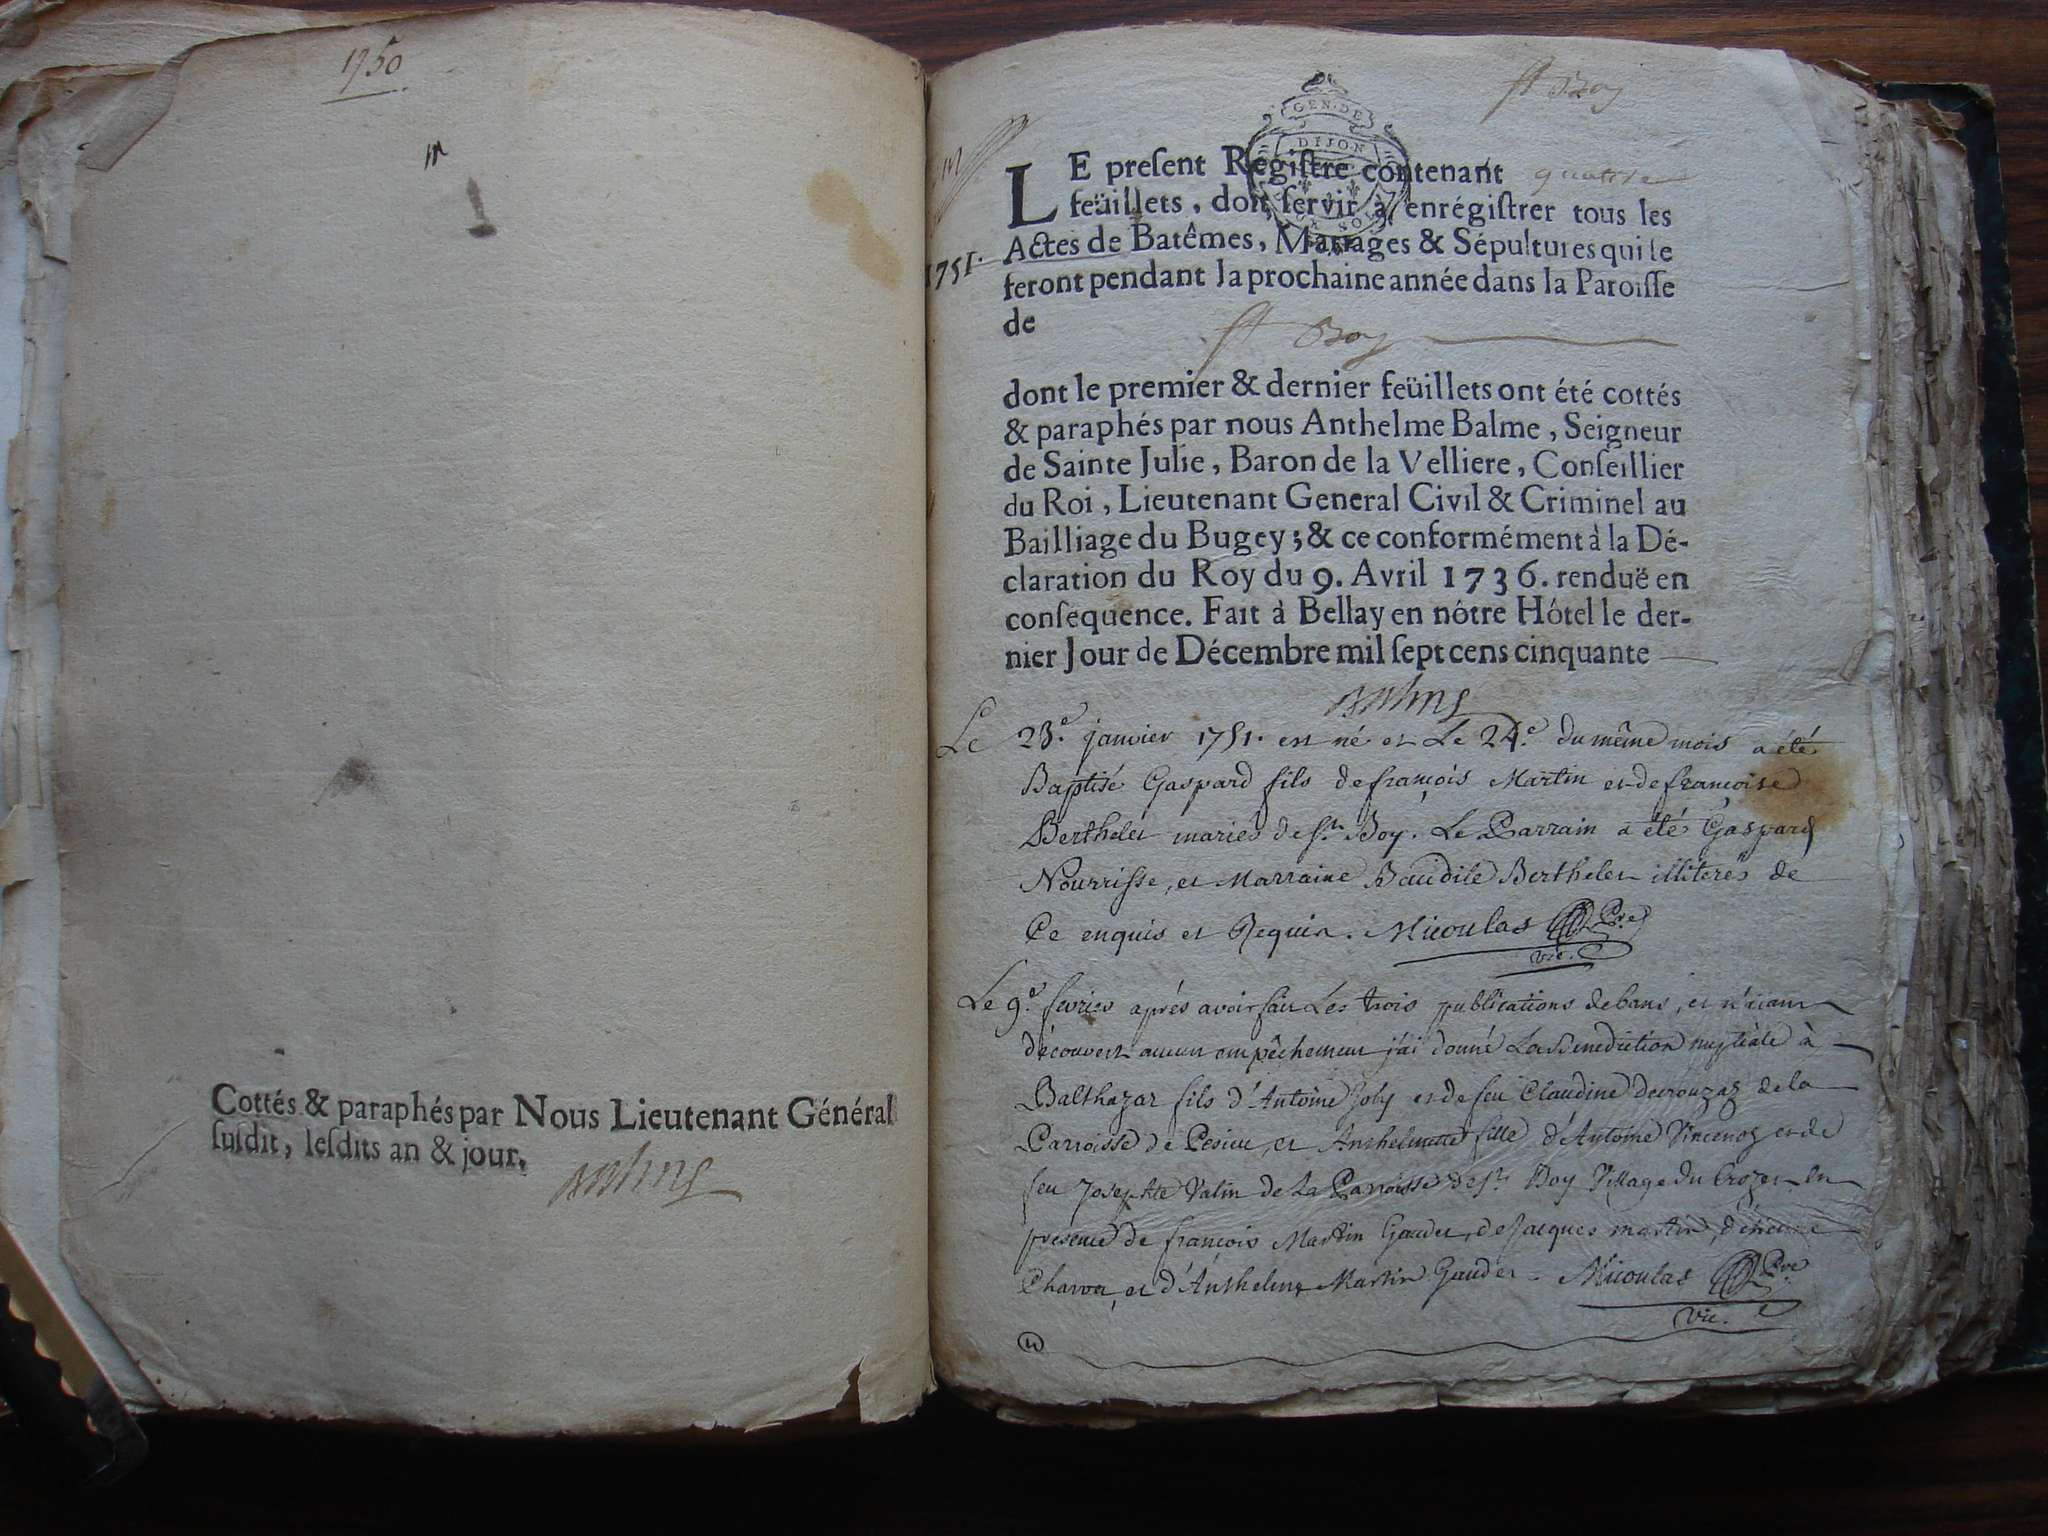 1750
Cottés & paraphés par Nous Lieutenant Général
susdit, lesdits an & jour.
St Boy
GEN. DE
DIJON
1751.
LE present Registre contenant quattre
feüillets, doit servir à enrégistrer tous les
Actes de Batêmes, Mariages & Sépultures qui se
feront pendant la prochaine année dans la Paroisse
de St Boy
dont le premier & dernier feüillets ont été cottés
& paraphés par nous Anthelme Balme, Seigneur
de Sainte Julie, Baron de la Velliere, Conseillier
du Roi, Lieutenant General Civil & Criminel au
Bailliage du Bugey; & ce conformément à la Dé-
claration du Roy du 9. Avril 1736. renduë en
conséquence. Fait à Bellay en nôtre Hôtel le der-
nier Jour de Décembre mil sept cens cinquante
Le 23.e janvier 1751. est né et Le 24.e du même mois a été
Baptisé Gaspard fils de françois Martin et de françoise
Berthelet mariés de St. Boy. Le Parrain a été Gaspard
Nourrisse, et Marraine Baudile Berthelet illiterés de
Ce enquis et Requis. Micoulas Pre
vic.
Le 9.e fevrier aprés avoir fait Les trois publications de bans, et n'aiant
découvert aucun empêchement j'ai donné La Benediction nuptiale à
Balthazar fils d'Antoine Joly et de feu Claudine Decrouzaz de la
Parroisse de Pesieu, et Anthelmette fille d'Antoine Vincenoz et de
feu Josephte Vatin de La Parroisse de St. Boy Village du Crozet en
presence de françois Martin Gaudet, de Jacques martin, d'étienne
Charvet, et d'Anthelme Martin Gaudet. Micoulas Pre
vic.